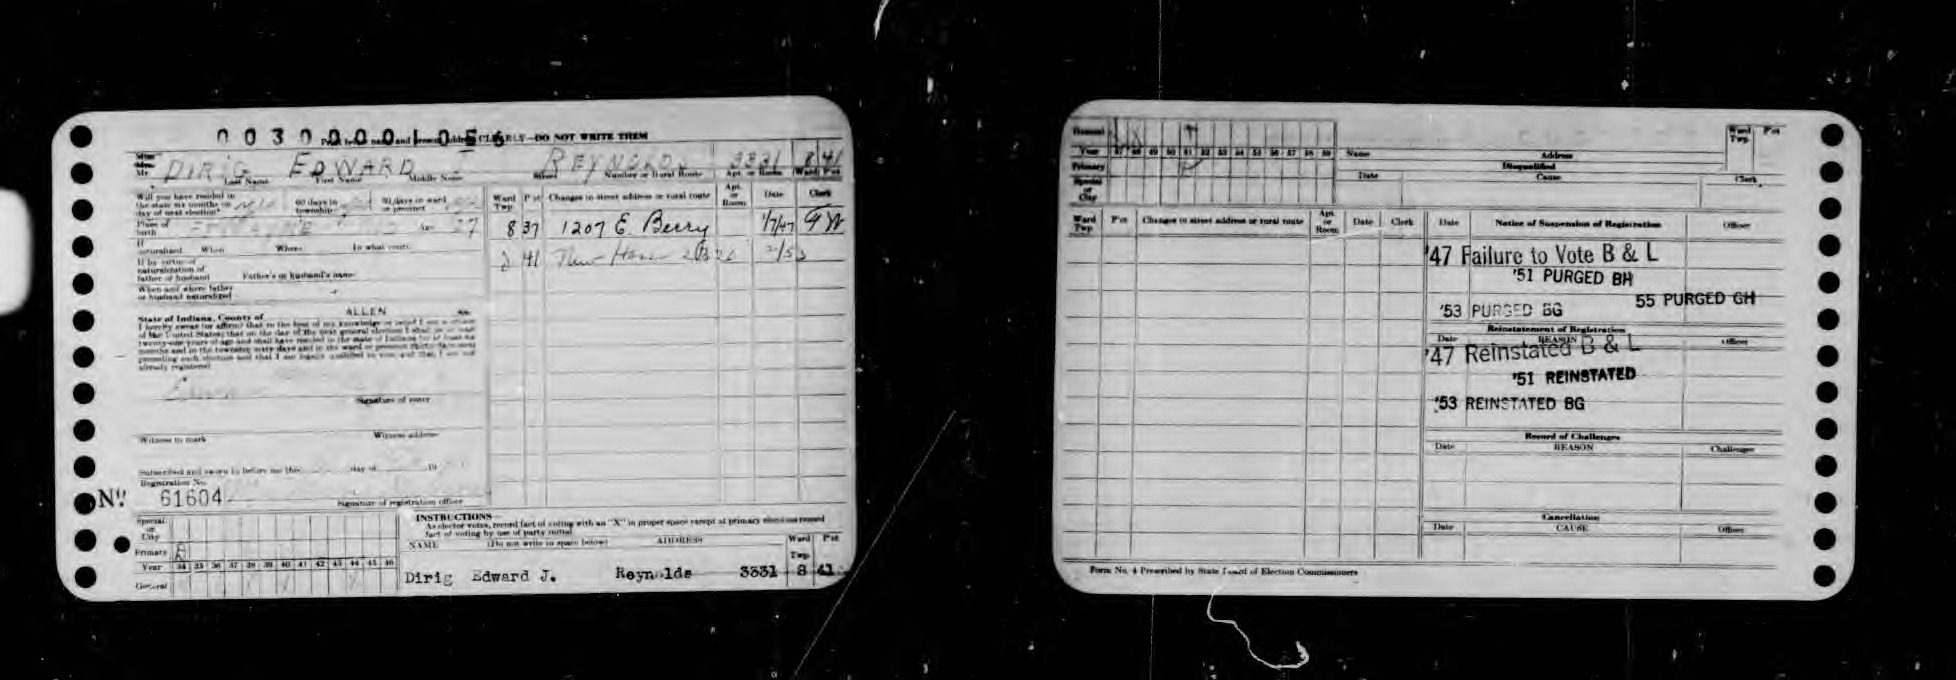 0030000105
Print last name and present address CLEARLY—DO NOT WRITE THEM
Miss
Mrs.
Mr. DIRIG EDWARD J REYNOLDS 3331 8 41
Last Name First Name Middle Name Street Number or Rural Route Apt. or Room Ward Pct
Will you have resided in
the state six months on
day of next election? 60 days in
township 30 days in ward
or precinct
Place of
birth FT WAYNE IND Age 27
If
naturalized When Where In what court
If by virtue of
naturalization of
father or husband Father's or husband's name
When and where father
or husband naturalized
State of Indiana, County of ALLEN ss:
I hereby swear (or affirm) that to the best of my knowledge or belief I am a citizen
of the United States; that on the day of the next general election I shall be at least
twenty-one years of age and shall have resided in the state of Indiana for at least six
months and in the township sixty days and in the ward or precinct thirty days next
preceding such election and that I am legally qualified to vote, and that I am not
already registered
Signature of voter
Witness to mark Witness address
Subscribed and sworn to before me this day of 19
Registration No.
No. 61604
Signature of registration officer
Ward
Twp. Pct Changes in street address or rural route Apt.
or
Room Date Clerk
8 37 1207 E. Berry 1/7/47 GW
41 New Haven 2/53
Special
or
City
Primary R
Year 34 35 36 37 38 39 40 41 42 43 44 45 46
General X X X
INSTRUCTIONS—
As elector votes, record fact of voting with an "X" in proper space except at primary elections record
fact of voting by use of party initial
NAME (Do not write in space below) ADDRESS Ward
Twp. Pct
Dirig Edward J. Reynolds 3331 8 41
General
Year 47 48 49 50 51 52 53 54 55 56 57 58 59
Primary
Special
or
City
Name Address Ward
Twp. Pct
Disqualified
Date Cause Clerk
Ward
Twp. Pct Changes in street address or rural route Apt
or
Room Date Clerk
Date Notice of Suspension of Registration Officer
'47 Failure to Vote B & L
'51 PURGED BH
55 PURGED GH
'53 PURGED BG
Reinstatement of Registration
Date REASON Officer
'47 Reinstated B & L
'51 REINSTATED
'53 REINSTATED BG
Record of Challenges
Date REASON Challenger
Cancellation
Date CAUSE Officer
Form No. 4 Prescribed by State Board of Election Commissioners